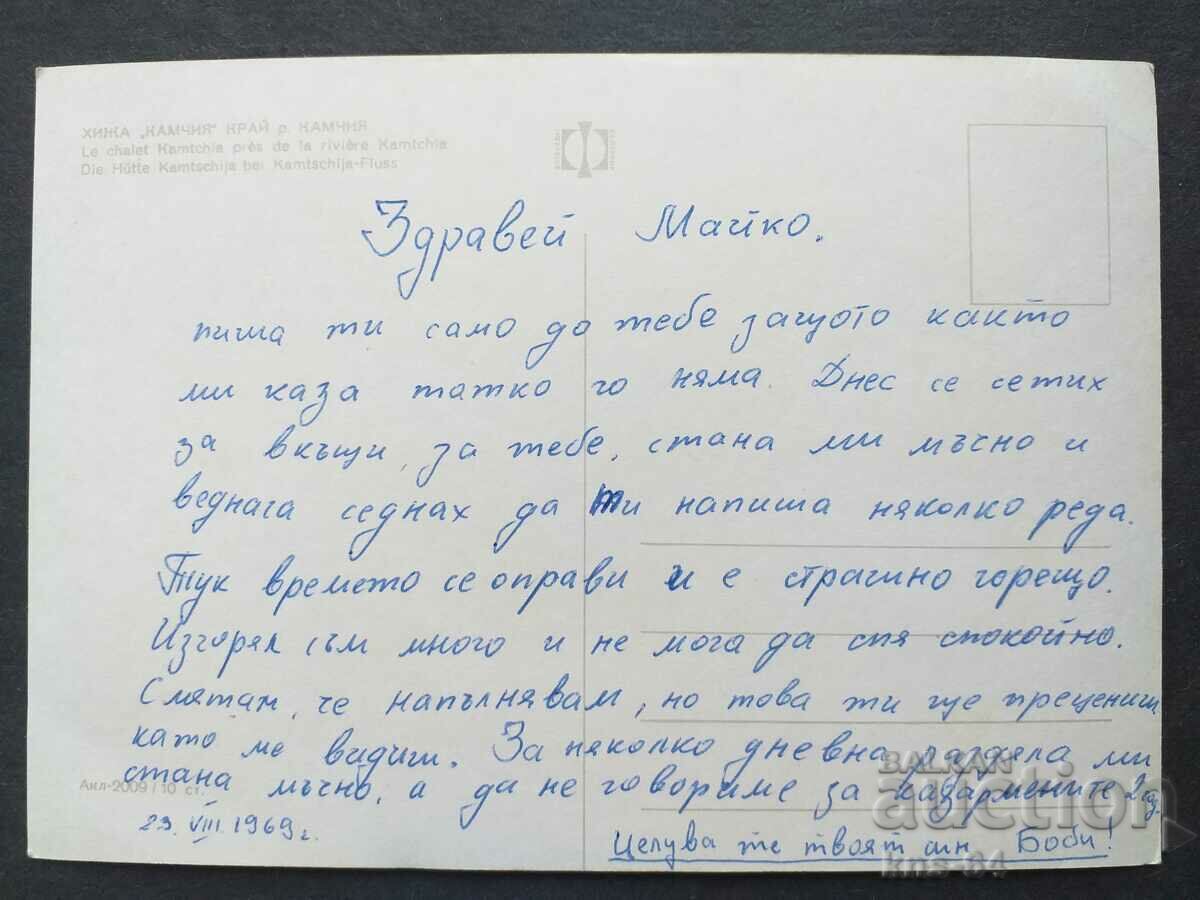 ХИЖА „КАМЧИЯ" КРАЙ р. КАМЧИЯ
Le chalet Kamtchia près de la rivière Kamtchia
Die Hütte Kamtschija bei Kamtschija-Fluss
Здравей Майко.
пиша ти само до тебе защото както
ми каза татко го няма. Днес се сетих
за вкъщи, за тебе, стана ми мъчно и
веднага седнах да ти напиша няколко реда.
Тук времето се оправи и е страшно горещо.
Изгорял съм много и не мога да спя спокойно.
Смятам, че напълнявам, но това ти ще прецениш
като ме видиш. За няколко дневна раздяла ми
стана мъчно, а да не говориме за казармените 2 год.
Акл-2009 / 10 ст.
23. VIII. 1969 г.
Целува те твоят син Боби!
BALKAN
auction
kns-64